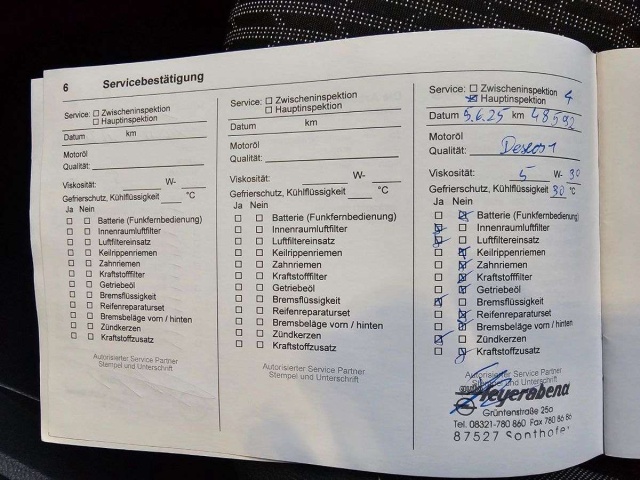 6 Servicebestätigung
Service: ☐ Zwischeninspektion
☐ Hauptinspektion
Datum km
Motoröl
Qualität:
Viskosität: W-
Gefrierschutz, Kühlflüssigkeit °C
Ja Nein
☐ ☐ Batterie (Funkfernbedienung)
☐ ☐ Innenraumluftfilter
☐ ☐ Luftfiltereinsatz
☐ ☐ Keilrippenriemen
☐ ☐ Zahnriemen
☐ ☐ Kraftstofffilter
☐ ☐ Getriebeöl
☐ ☐ Bremsflüssigkeit
☐ ☐ Reifenreparaturset
☐ ☐ Bremsbeläge vorn / hinten
☐ ☐ Zündkerzen
☐ ☐ Kraftstoffzusatz
Autorisierter Service Partner
Stempel und Unterschrift
Service: ☐ Zwischeninspektion
☐ Hauptinspektion
Datum km
Motoröl
Qualität:
Viskosität: W-
Gefrierschutz, Kühlflüssigkeit °C
Ja Nein
☐ ☐ Batterie (Funkfernbedienung)
☐ ☐ Innenraumluftfilter
☐ ☐ Luftfiltereinsatz
☐ ☐ Keilrippenriemen
☐ ☐ Zahnriemen
☐ ☐ Kraftstofffilter
☐ ☐ Getriebeöl
☐ ☐ Bremsflüssigkeit
☐ ☐ Reifenreparaturset
☐ ☐ Bremsbeläge vorn / hinten
☐ ☐ Zündkerzen
☐ ☐ Kraftstoffzusatz
Autorisierter Service Partner
Stempel und Unterschrift
Service: ☐ Zwischeninspektion
☒ Hauptinspektion 4
Datum 5.6.25 km 48592
Motoröl
Qualität: Dexos 1
Viskosität: 5 W- 30
Gefrierschutz, Kühlflüssigkeit 30 °C
Ja Nein
☐ ☒ Batterie (Funkfernbedienung)
☒ ☐ Innenraumluftfilter
☒ ☐ Luftfiltereinsatz
☐ ☒ Keilrippenriemen
☐ ☒ Zahnriemen
☐ ☒ Kraftstofffilter
☐ ☒ Getriebeöl
☒ ☐ Bremsflüssigkeit
☐ ☒ Reifenreparaturset
☐ ☒ Bremsbeläge vorn / hinten
☒ ☐ Zündkerzen
☐ ☒ Kraftstoffzusatz
Autorisierter Service Partner
Stempel und Unterschrift
auto Meyerabend
Grüntenstraße 25a
Tel. 08321-780 860 Fax 780 86 86
87527 Sonthofen